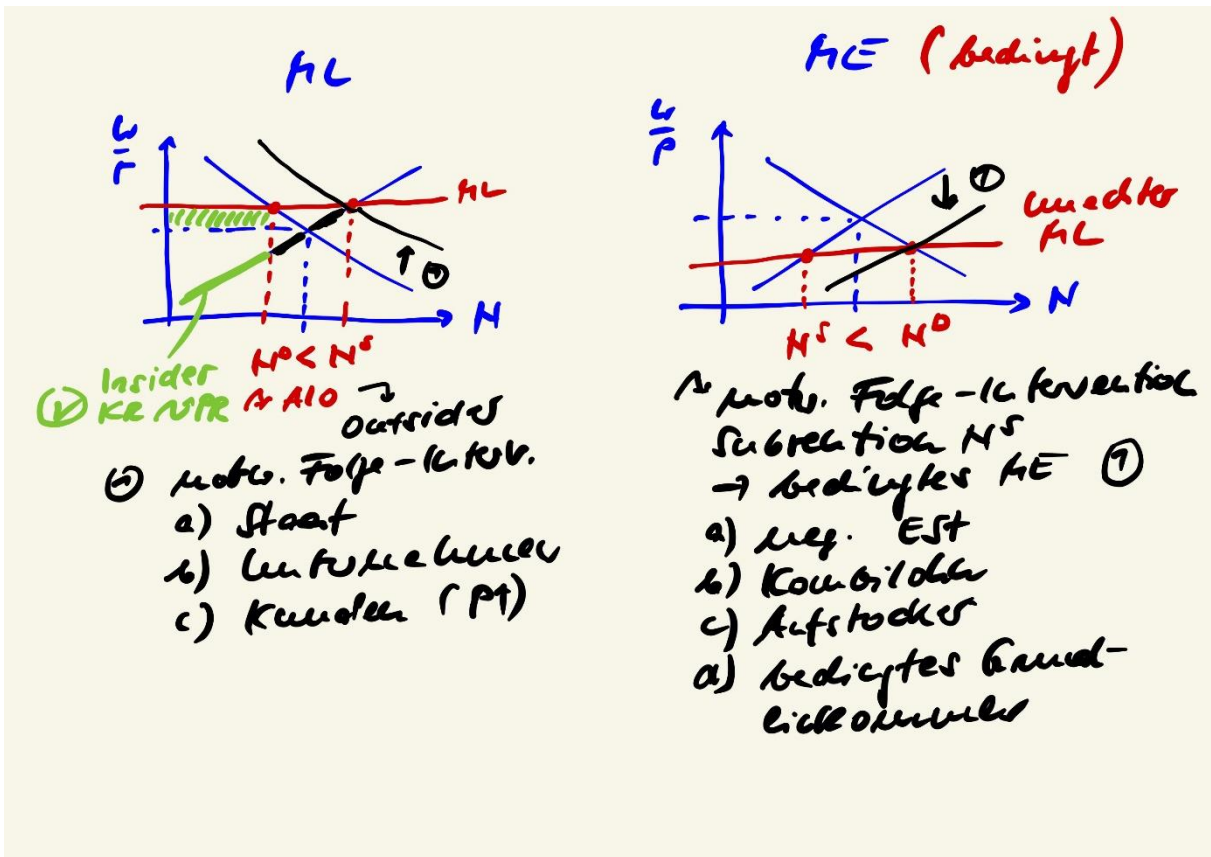 ML
W
P
ML
N
N^D < N^S
Insider
⇒ ALO → Outsider
notw. Folge-Interv.
a) Staat
b) Unternehmer
c) Kunden (P↑)
ME (bedingt)
W
P
①
unechter
ML
N
N^S < N^D
notw. Folge-Intervention
Subvention N^S
→ bedingtes ME ①
a) neg. ESt
b) Kombilohn
c) Aufstocker
d) bedingtes Grund-
einkommen